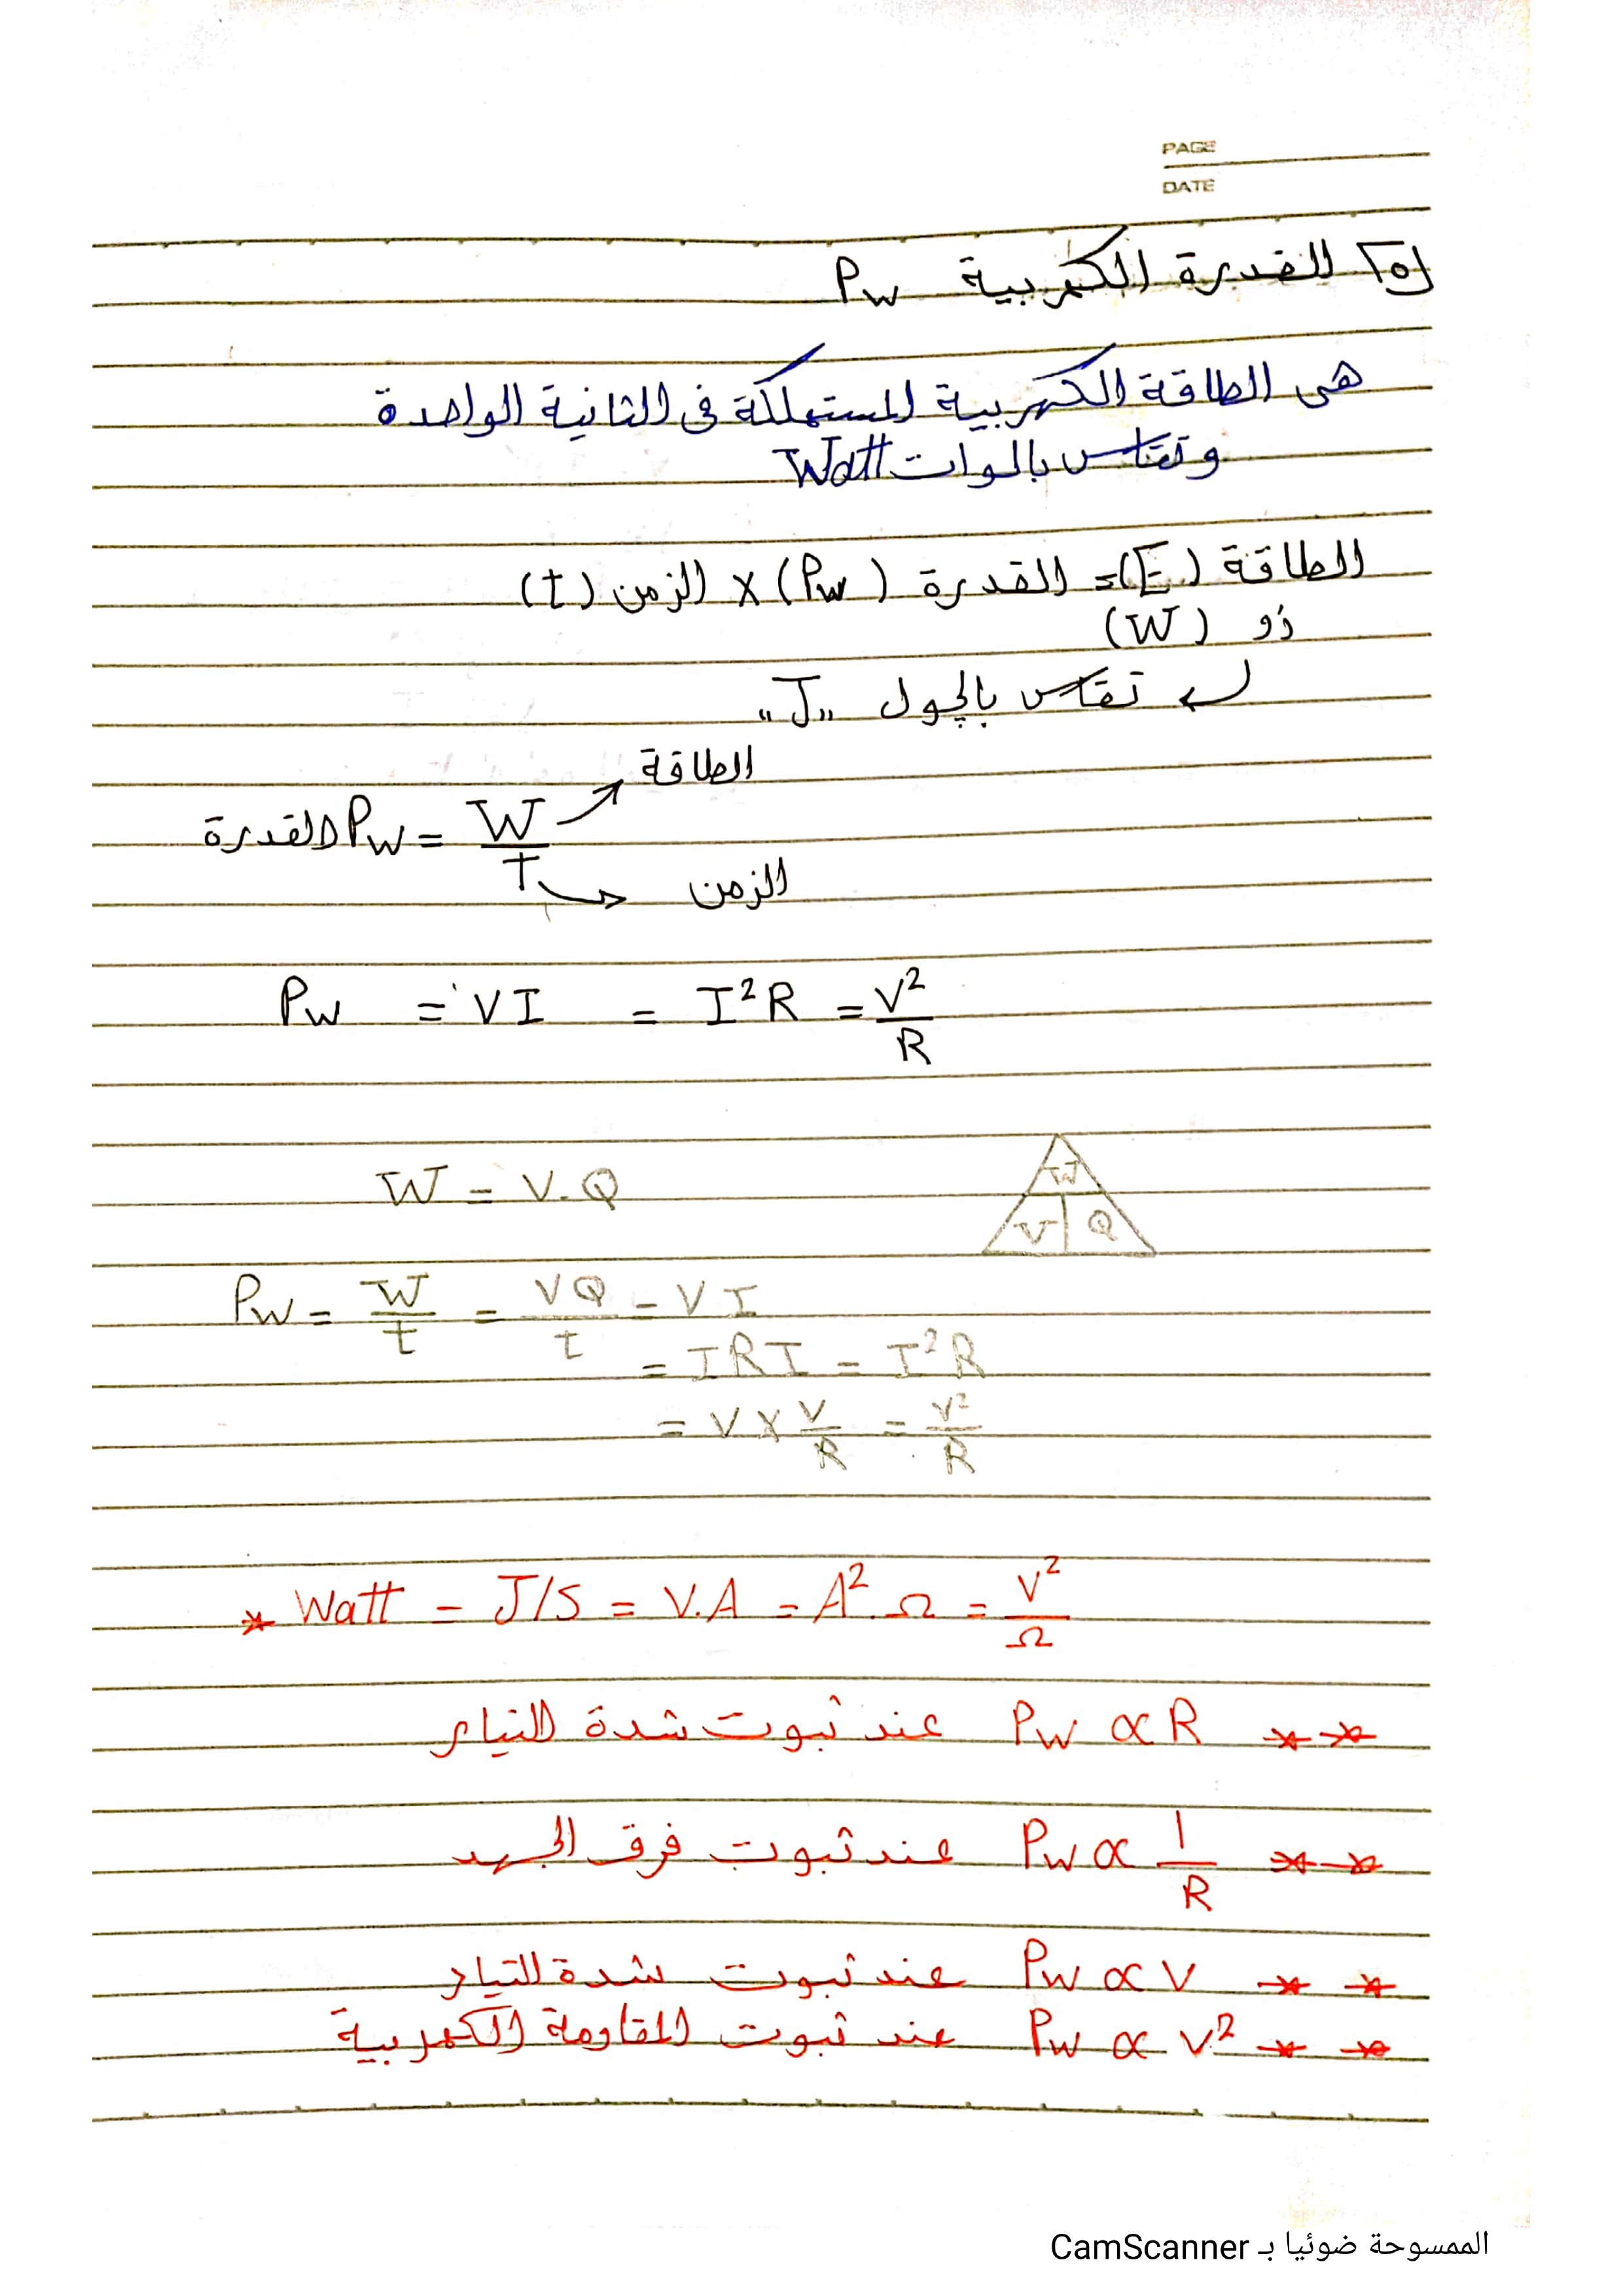 PAGE
DATE
[٥] القدرة الكهربية Pw
هى الطاقة الكهربية المستهلكة فى الثانية الواحدة
وتقاس بالوات Watt
الطاقة (E) = القدرة (Pw) × الزمن (t)
أو (W)
تقاس بالجول "J"
الطاقة
القدرة Pw = W/T
الزمن
Pw = VI = I²R = V²/R
W = V.Q
W
V Q
Pw = W/t = VQ/t = VI
= IRI = I²R
= V × V/R = V²/R
* Watt = J/S = V.A = A².Ω = V²/Ω
** Pw ∝ R عند ثبوت شدة التيار
** Pw ∝ 1/R عند ثبوت فرق الجهد
** Pw ∝ V عند ثبوت شدة التيار
** Pw ∝ V² عند ثبوت المقاومة الكهربية
الممسوحة ضوئيا بـ CamScanner